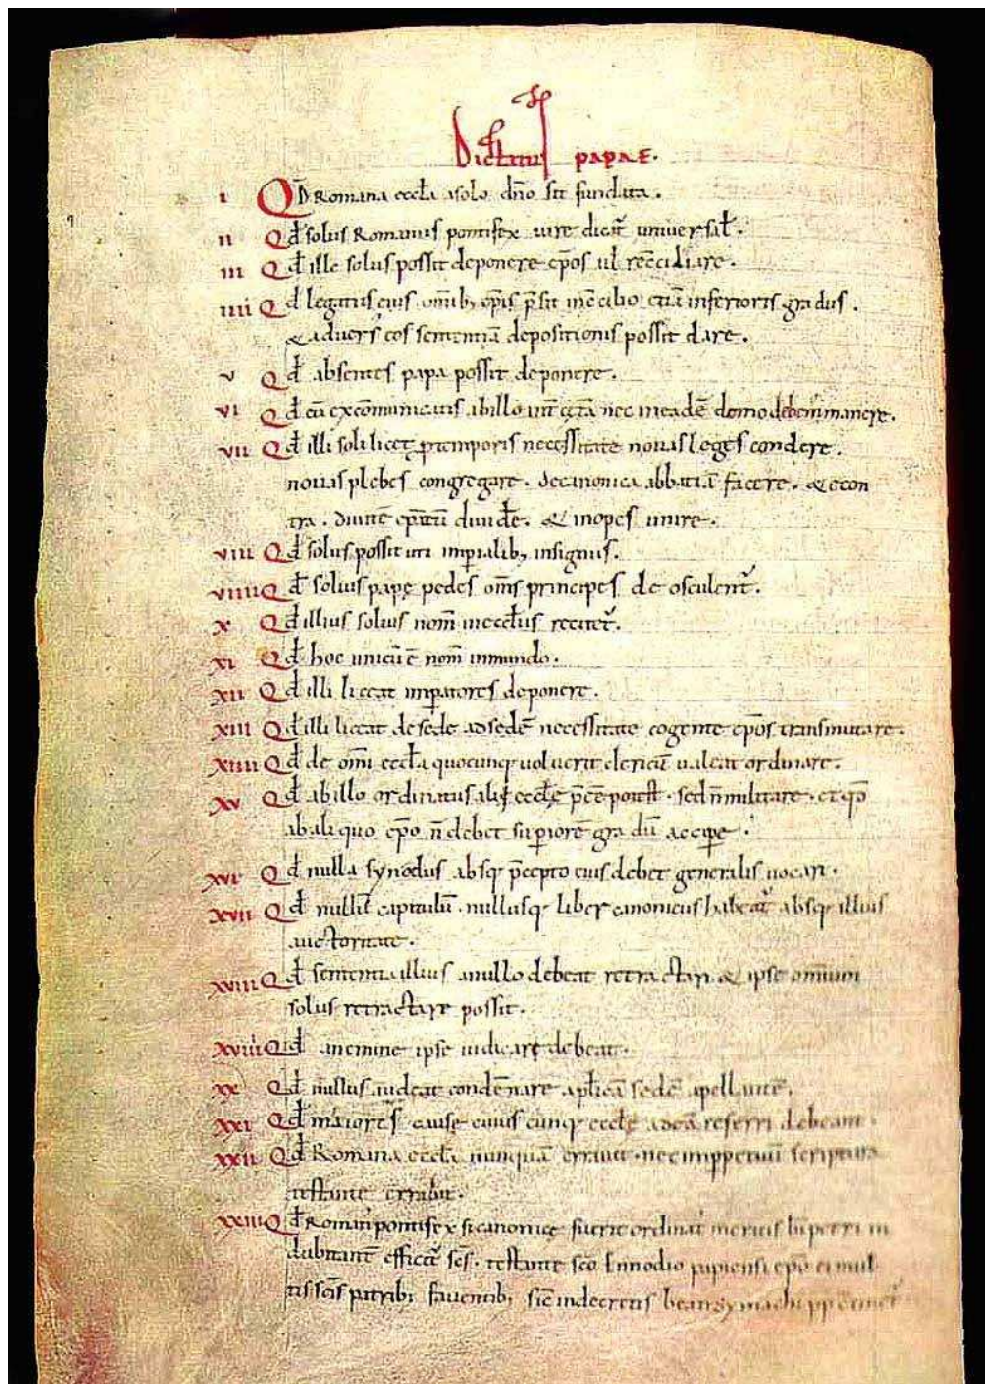 Dictatus papae.
i QD Romana eccła asolo dño sit fundata.
ii Qđ solus Romanus pontifex iure dicat̃ universał.
iii Qđ ille solus possit deponere ep̃os uł recc̃iliare.
iiii Qđ legatus eius om̃ibꝫ ep̃is p̃sit in c̃cilio etiã inferioris gradus.
& advers̃ eos sententiã depositionis possit dare.
v Qđ absentes papa possit deponere.
vi Qđ cũ excõmunicatis abillo int̃ cet̃a nec ineadẽ domo debem᾽ manere.
vii Qđ illi soli licet ꝓ temporis necessitate novas leges condere.
novas plebes congregare. decanonica abbatiã facere. & econ
tra. divitẽ ep̃atũ divid̃e. & inopes unire.
viii Qđ solus possit uti imp̱ialibꝫ insigniis.
viiii Qđ solius papę pedes om̃s principes deosculent᷑.
x Qđ illius solius nom̃ in eccłiis recitet᷑.
xi Qđ hoc unicũ ẽ nom̃ inmundo.
xii Qđ illi liceat imp̱atores deponere.
xiii Qđ illi liceat desede adsedẽ necessitate cogente ep̃os transmutare.
xiiii Qđ de om̃i eccła quocunqꝫ voluerit clericũ valeat ordinare.
xv Qđ abillo ordinatus alii eccłę p̃ẽe potest. sed ñ militare. et qđ
abaliquo ep̃o ñ debet sup̱iorẽ gradũ accip̱e.
xvi Qđ nulla synodus absqꝫ p̃cepto eius debet generalis vocari.
xvii Qđ nullũ capitulũ. nullusqꝫ liber canonicus habeat᷑ absqꝫ illius
auctoritate.
xviii Qđ sententia illius anullo debeat retractari & ipse omnium
solus retractare possit.
xviiii Qđ anemine ipse iudicare debeat.
xx Qđ nullus audeat condẽnare apłicã sedẽ apellantẽ.
xxi Qđ maiores causę cuiuscunqꝫ eccłę adeã referri debeant.
xxii Qđ Romana eccła nunquã erravit. nec inp̱petuũ scriptura
testante errabit.
xxiii Qđ Roman᾽ pontifex si canonicę fuerit ordinat᾽ meritis b̃i petri in
dubitant̃ effici᷑t scs̃. testante sc̃o Ennodio papiensi ep̃o ei mul
tis sc̃is patribꝫ faventibꝫ sic̃ indecretis beati symachi pp̃ c̃tinet᷑